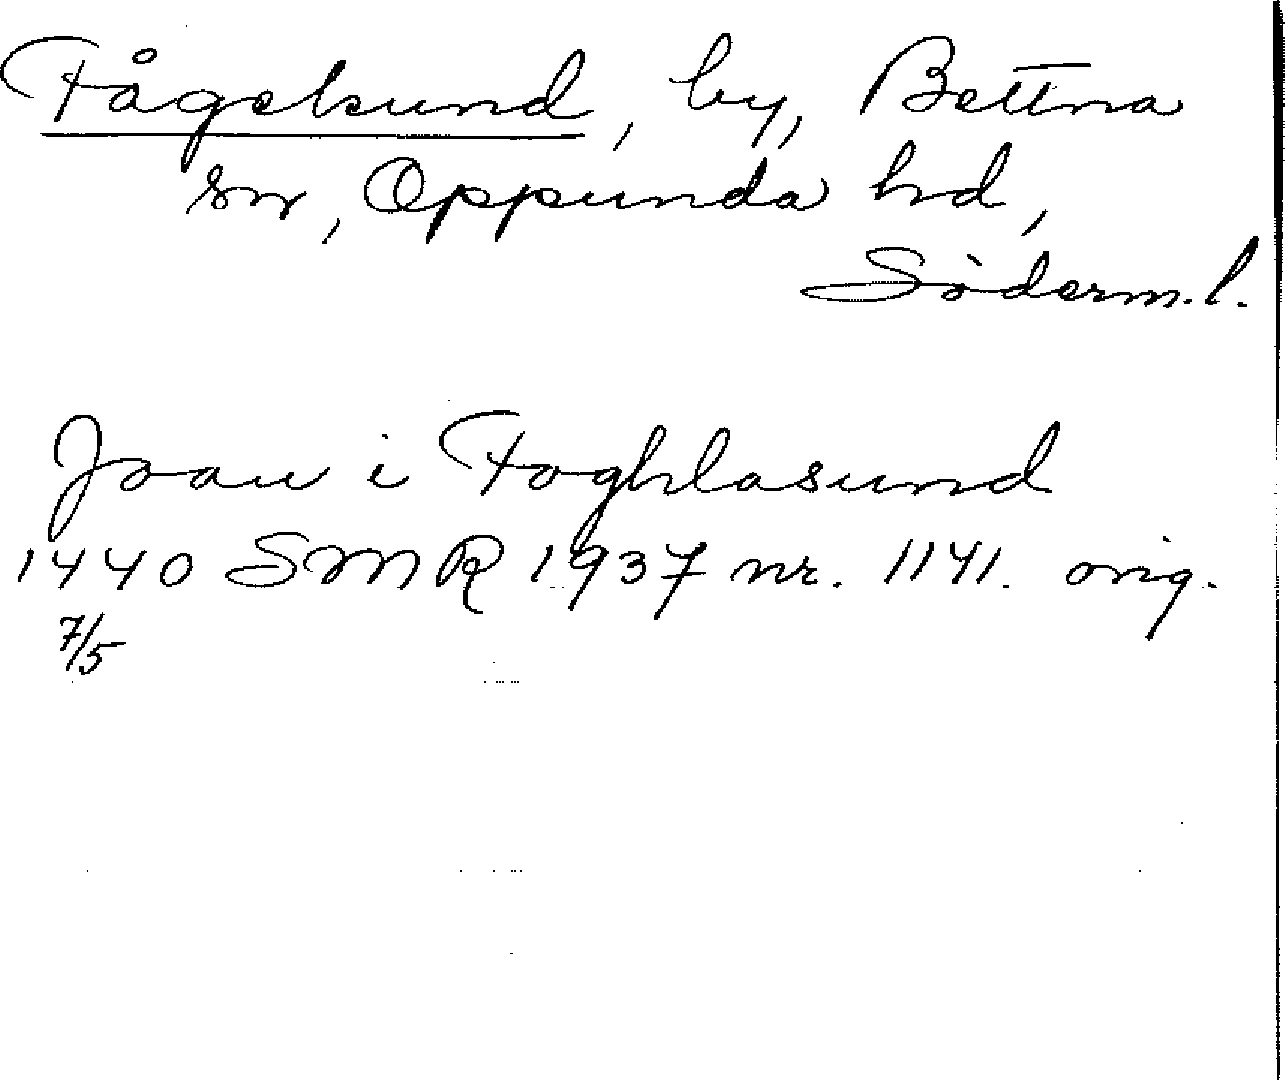 Fågelsund, by, Bettna
sn, Oppunda hd,
Söderm.l.
Joan i Foghlasund
1440 SMR 1937 nr. 1141. orig.
7/5